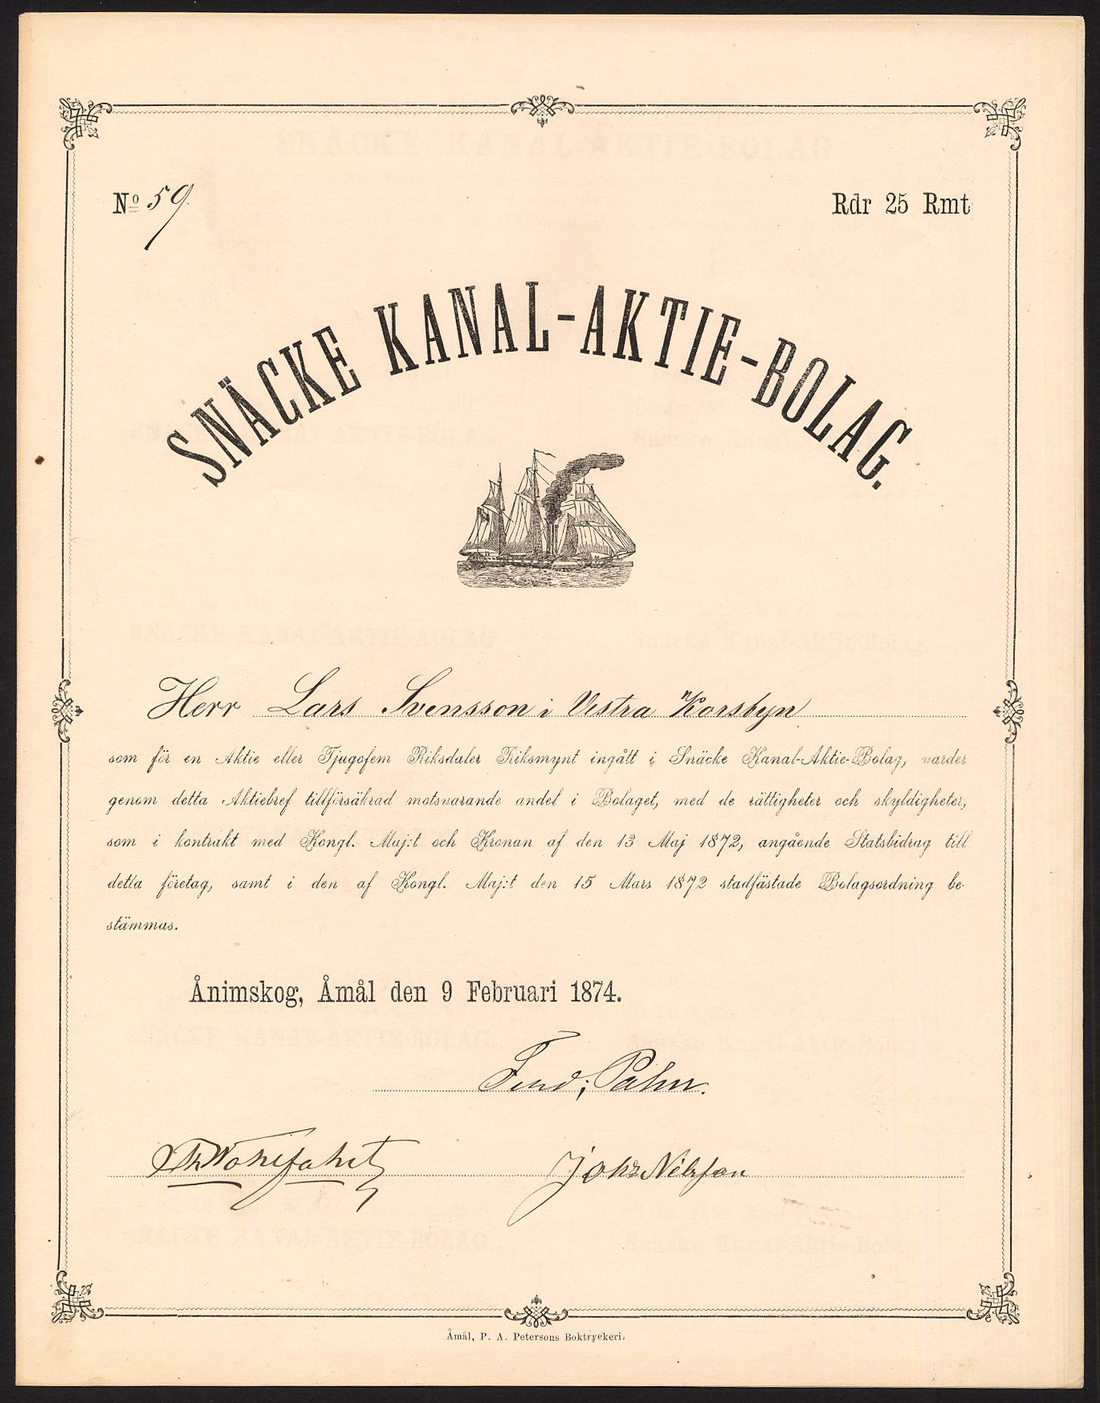 No 59
Rdr 25 Rmt
SNÄCKE KANAL-AKTIE-BOLAG.
Herr Lars Svensson i Vestra Korsbyn
som för en Aktie eller Tjugofem Riksdaler Riksmynt ingått i Snäcke Kanal-Aktie-Bolag, varder
genom detta Aktiebref tillförsäkrad motsvarande andel i Bolaget, med de rättigheter och skyldigheter,
som i kontrakt med Kongl. Maj:t och Kronan af den 13 Maj 1872, angående Statsbidrag till
detta företag, samt i den af Kongl. Maj:t den 15 Mars 1872 stadfästade Bolagsordning be-
stämmas.
Ånimskog, Åmål den 9 Februari 1874.
Joh Nilsson
Åmål, P. A. Petersons Boktryckeri.